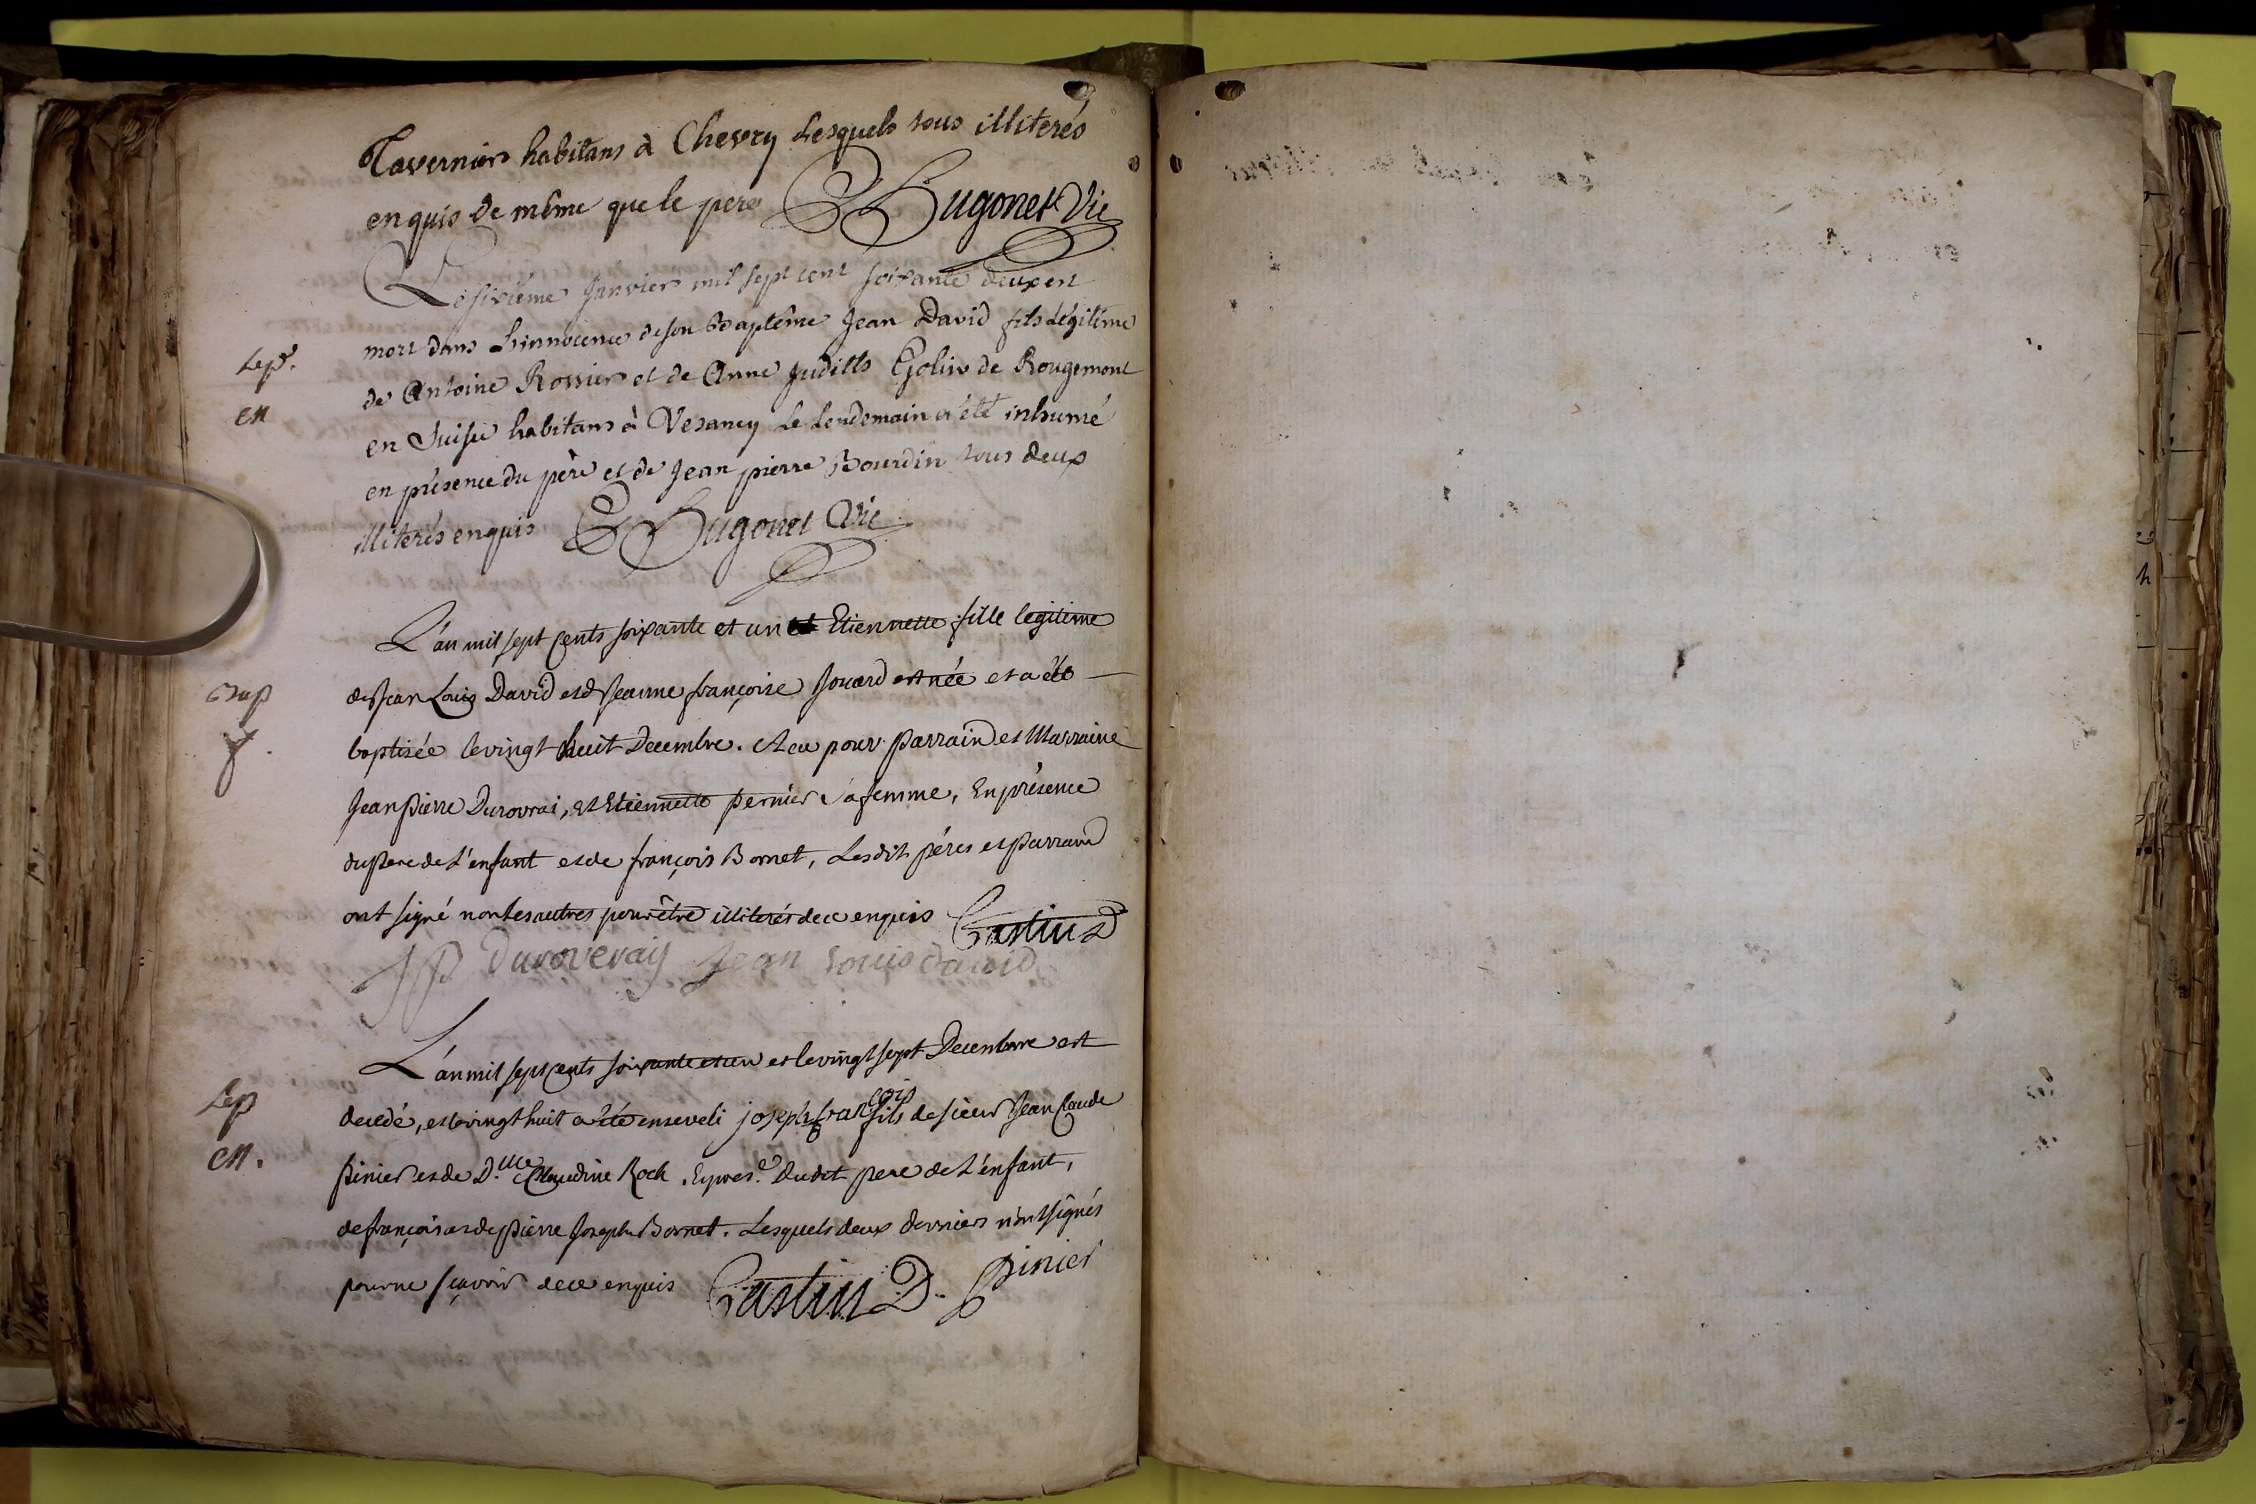 Tavernier habitans à Chevry Lesquels tous illiterés
enquis de même que le pere Hugonet Vic
Le sixiéme Janvier mil sept cent soixante deux est
mort dans L'innocence de son Baptême Jean David fils Légitime
Sep.
de Antoine Rossier et de Anne Judith de Rougemont
en
en Suisse habitans à Vesancy Le Lendemain a été inhumé
en présence du père et de Jean pierre Bourdin tous deux
illiterés enquis Hugonet Vic
L'an mil sept cents soixante et un Etiennette fille legitime
Bap
de Jean Louis David et de Jeanne françoise Jouard est née et a été
f.
baptisée le vingt huit Decembre. A eu pour Parrain et Marraine
Jean Pierre Durovrai, et Etiennette Pernier sa femme, En présence
du Pere de L'enfant et de françois Bornet, Lesdits péres et Parrain
ont signé non les autres pour être illiterés de ce enquis Castin D
JP Duroveray Jean Louis david
L'an mil sept cents soixante et un et le vingt sept Decembre est
Sep
decedé, et le vingt huit a été enseveli joseph françois fils de sieur Jean Claude
en.
Pinier et de D.lle Claudine Roch. En pres.e dudit pere de L'enfant,
de françois et de Pierre Joseph Bornet. Lesquels deux derniers n'ont signés
pour ne sçavoir de ce enquis Castin D. Pinier